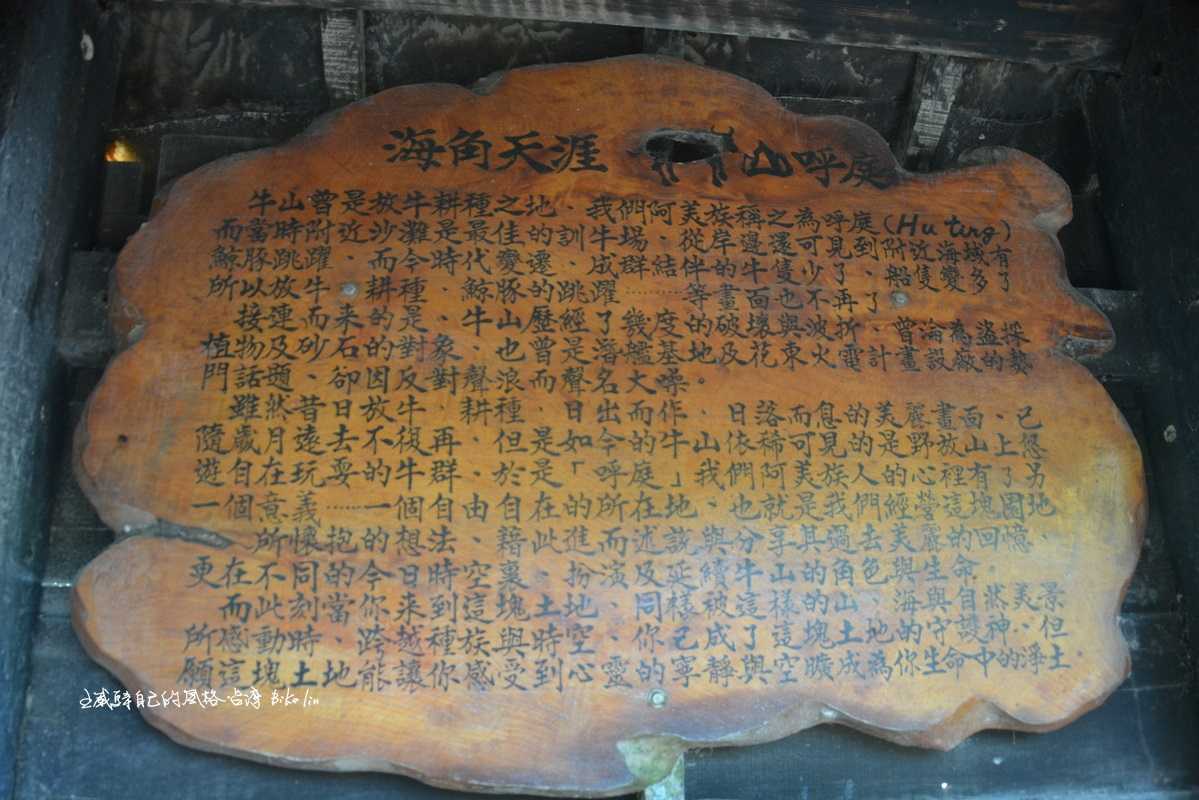 海角天涯 山呼庭
牛山曾是放牛耕種之地、我們阿美族稱之為呼庭(Huting)
而當時附近沙灘是最佳的訓牛場、從岸邊還可見到附近海域有
鯨豚跳躍、而今時代變遷、成群結伴的牛隻少了、船隻變多了
所以放牛、耕種、鯨豚的跳躍………等畫面也不再了
接連而來的是、牛山歷經了幾度的破壞與波折、曾淪為盜採
植物及砂石的對象、也曾是潛艦基地及花東火電計畫設廠的熱
門話題、卻因反對聲浪而聲名大噪。
雖然昔日放牛、耕種、日出而作、日落而息的美麗畫面、已
隨歲月遠去不復再、但是如今的牛山依稀可見的是野放山上悠
遊自在玩耍的牛群、於是「呼庭」我們阿美族人的心裡有了另
一個意義………一個自由自在的所在地、也就是我們經營這塊園地
所懷抱的想法、藉此進而述說與分享其過去美麗的回憶、
更在不同的今日時空裏、扮演及延續牛山的角色與生命。
而此刻當你來到這塊土地、同樣被這樣的山、海與自然美景
所感動時、跨越種族與時空、你己成了這塊土地的守護神、但
願這塊土地能讓你感受到心靈的寧靜與空曠成為你生命中的淨土.
自己的風格.台灣 Biko lin